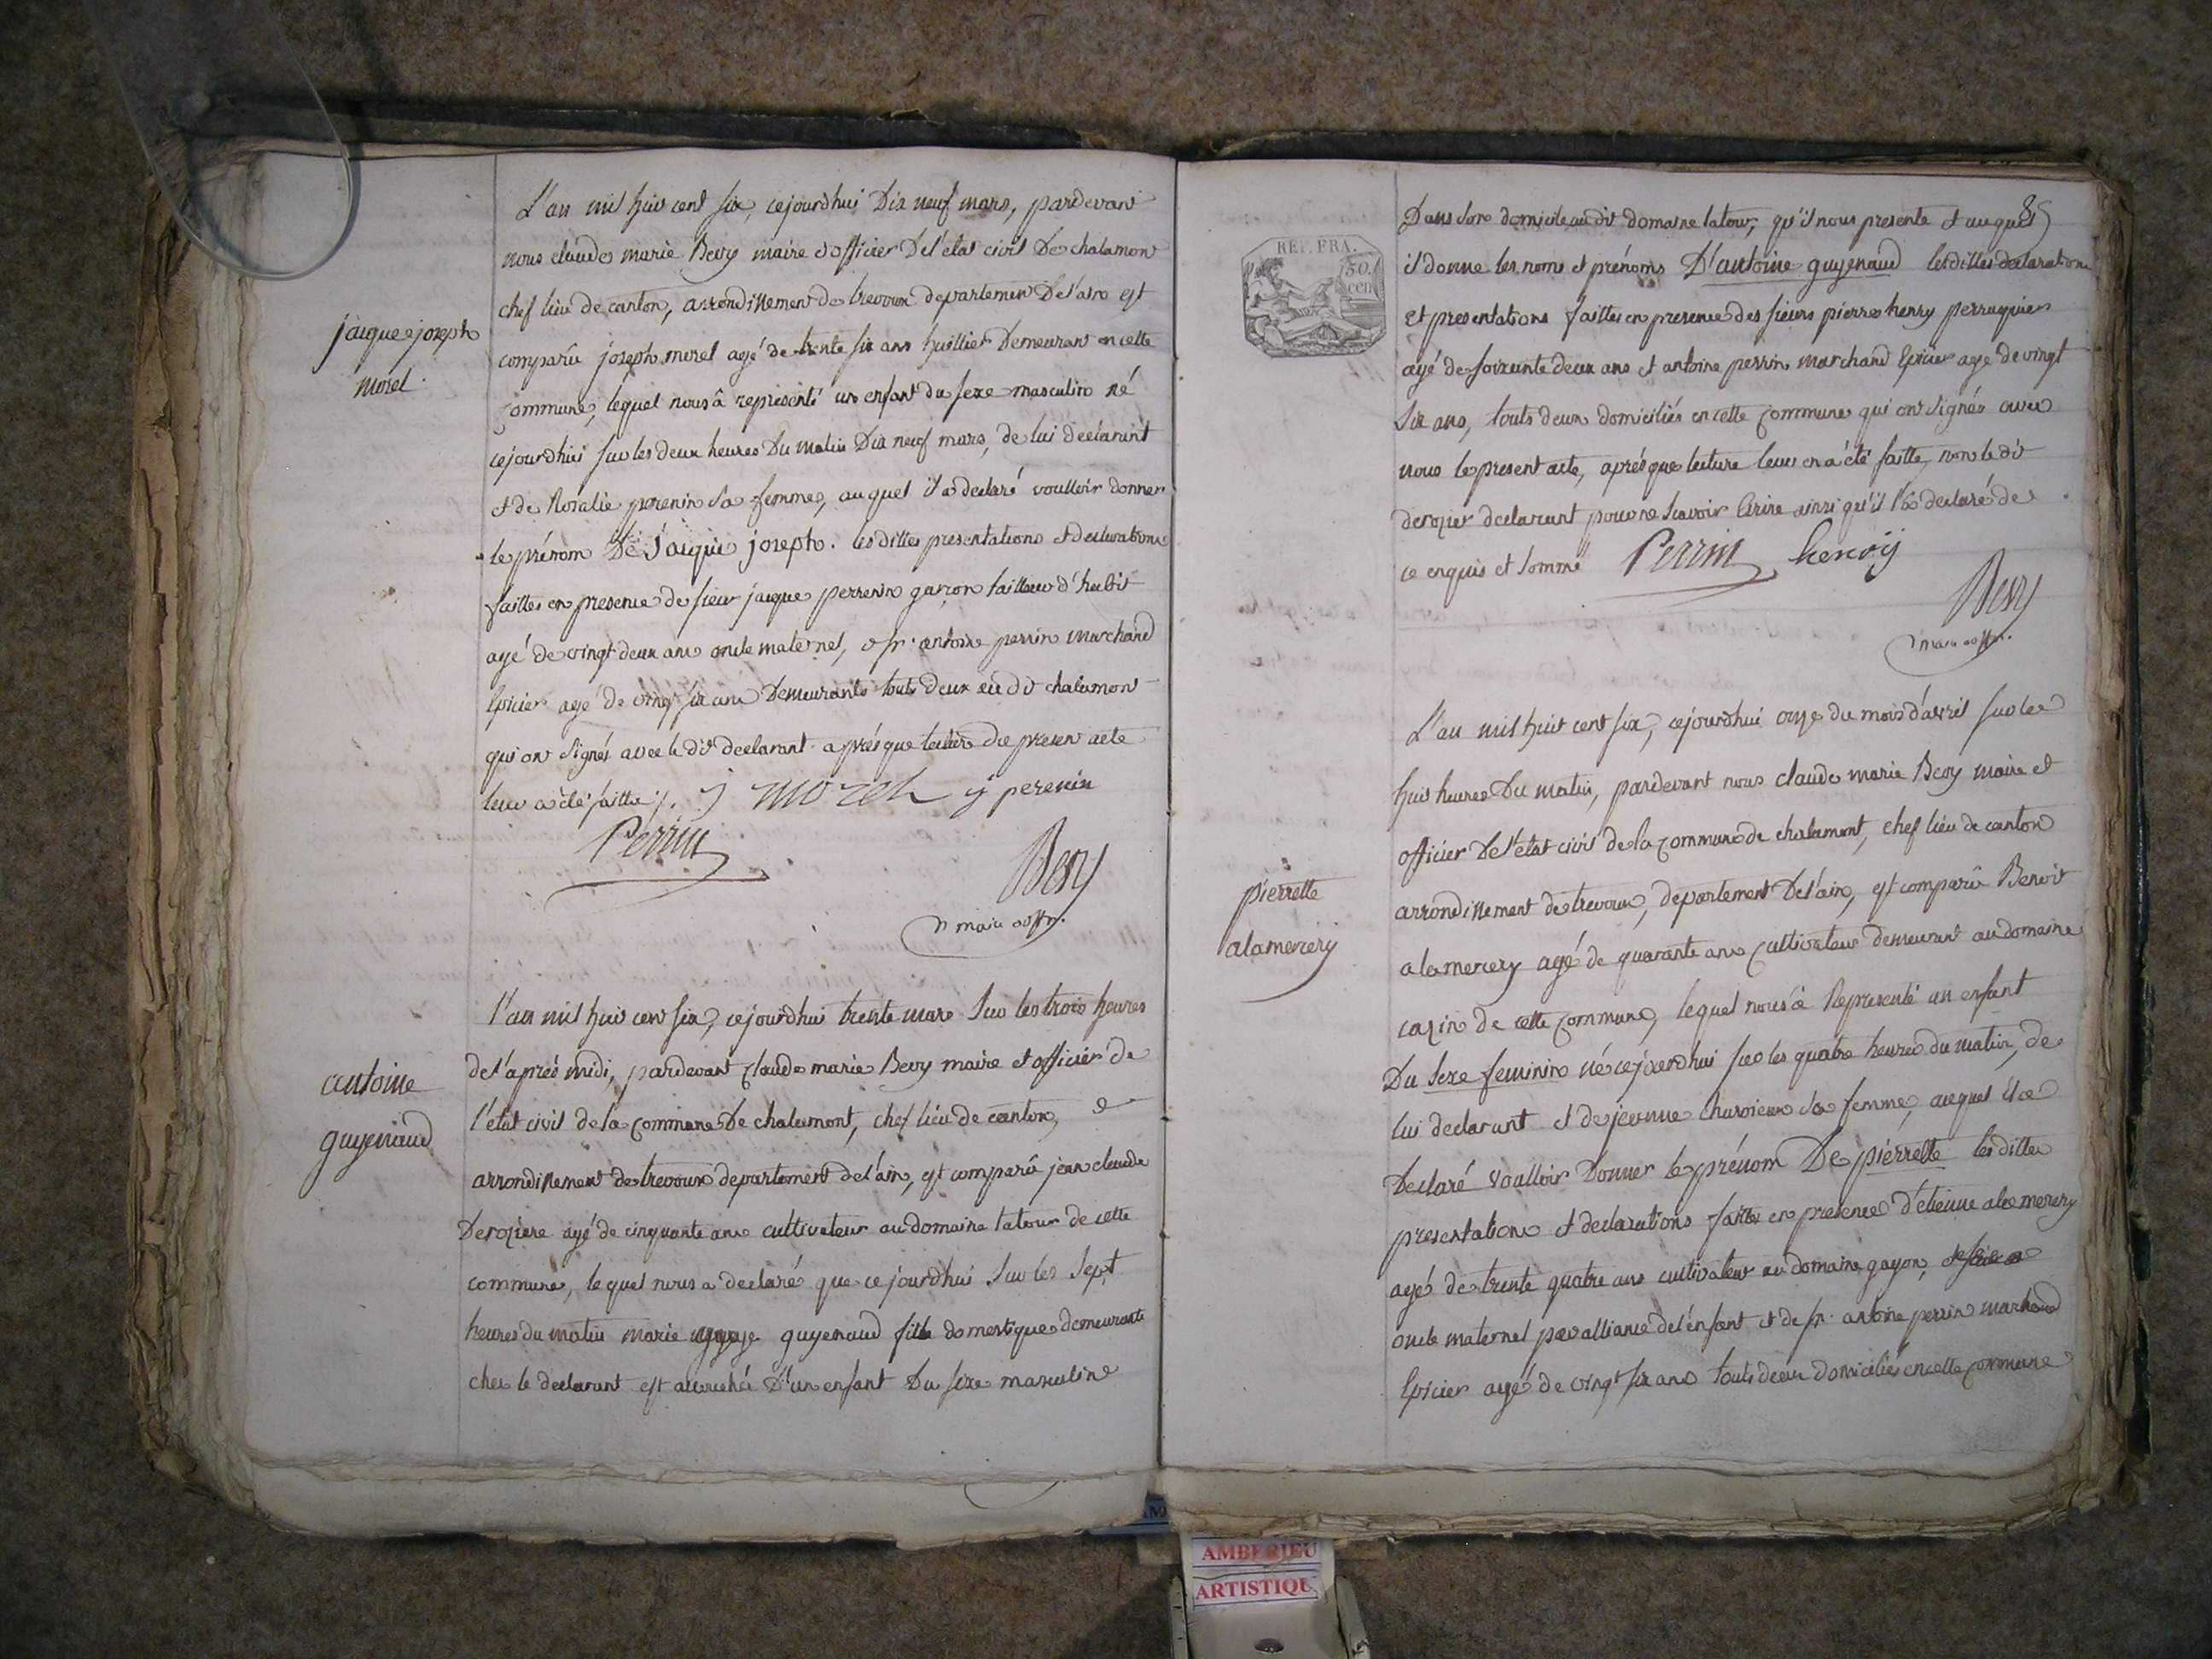 L'an mil huit cent six, cejourdhui Dix neuf mars, pardevant
nous claude marie Bevy maire & officier De l'etat civil De chalamont
chef lieu de canton, arrondissement de trevoux departement De l'ain est
jacque joseph
morel.
comparû joseph morel agé de trente six ans huillier Demeurant en cette
commune, lequel nous â représenté un enfant du sexe masculin né
cejourdhui sur les deux heures Du matin Dix neuf mars, de lui declarant
et de Rosalie perenin sa femme, auquel il a declaré voulloir donner
le prénom De jacque joseph. lesdittes presentations et declarations
faittes en presence de sieur jacque perrenin garçon tailleur d'habit
agé de vingt deux ans oncle maternel, & sr. antoine perrin marchand
Epicier agé de vingt six ans Demeurants touts deux au dit chalamont
qui ont signés avec le dit declarant après que lecture du present acte
leur a été faitte /. j morel j perenin
Perrin
Bevy
maire & offr.
l'an mil huit cent six, cejourdhui trente mars sur les trois heures
antoine
guyenaud
de l'après midi, pardevant claude marie Bevy maire et officier de
l'état civil de la commune De chalamont, chef lieu de canton, &
arrondissement de trevoux departement de l'ain, est comparû jean claude
Derozière agé de cinquante ans cultivateur au domaine latour de cette
commune, lequel nous a declaré que ce jourdhui sur les sept
heures du matin marie guyenaud fille domestique demeurante
chez le declarant est accouchée D'un enfant Du sexe masculin
85
REP. FRA.
50.
cen
Dans son domicile au dit domaine latour, qu'il nous presente et auquel
il donne les noms et prénoms D'antoine guyenaud lesdittes declarations
et presentations faittes en presence des sieurs pierre henry perruquier
agé de soixante deux ans et antoine perrin marchand Epicier agé de vingt
six ans, touts deux domiciliés en cette commune qui ont signés avec
nous le present acte, après que lecture leur en a été faitte, non le dit
derozier declarant pour ne scavoir Ecrire ainsi qu'il l'a declaré de
ce enquis et sommé Perrin henrij
Bevy
maire & offr.
L'an mil huit cent six, cejourdhui onze du mois d'avril sur les
huit heures Du matin, pardevant nous claude marie Bevy maire et
officier De l'etat civil de la commune de chalamont, chef lieu de canton
pierrette
alamercery
arrondissement de trevoux, departement De l'ain, est comparû Benoit
alamercery agé de quarante ans cultivateur demeurant au domaine
cazin de cette commune, lequel nous â Representé un enfant
Du sexe feminin né cejourdhui sur les quatre heures du matin, de
lui declarant et de jeanne sa femme, auquel il a
Declaré voulloir Donner le prénom De pierrette lesdittes
presentations et declarations faittes en presence d'etienne alamercery
agé de trente quatre ans cultivateur au domaine gayon,
oncle maternel par alliance de l'énfant et de sr. antoine perrin marchand
Epicier agé de vingt six ans touts deux domiciliés en cette commune
AMBERIEU
ARTISTIQU